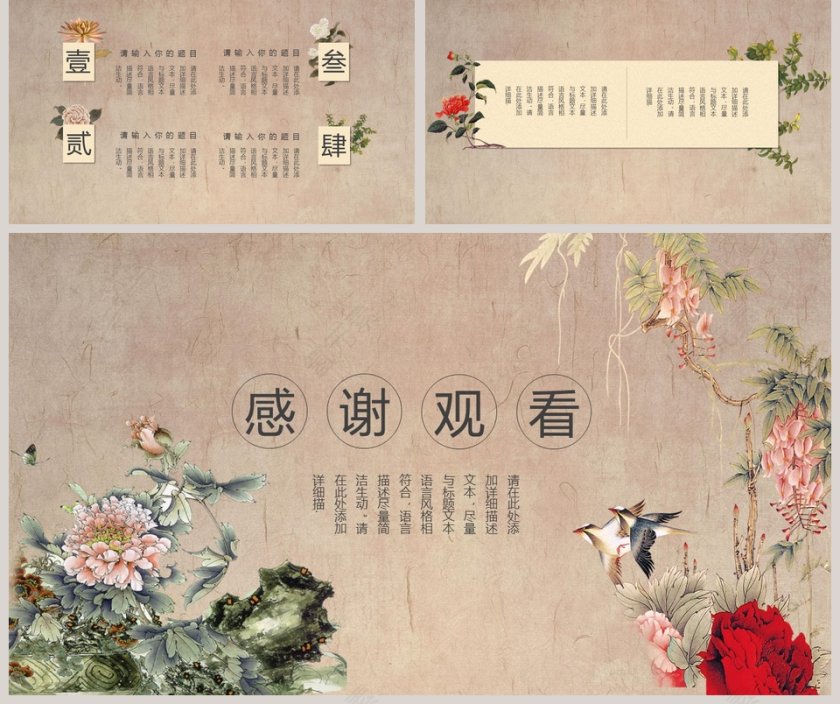 壹
请输入你的题目
请在此处添
加详细描述
文本，尽量
与标题文本
语言风格相
符合，语言
描述尽量简
洁生动。
贰
请输入你的题目
请在此处添
加详细描述
文本，尽量
与标题文本
语言风格相
符合，语言
描述尽量简
洁生动。
叁
请输入你的题目
请在此处添
加详细描述
文本，尽量
与标题文本
语言风格相
符合，语言
描述尽量简
洁生动。
肆
请输入你的题目
请在此处添
加详细描述
文本，尽量
与标题文本
语言风格相
符合，语言
描述尽量简
洁生动。
请在此处添
加详细描述
文本，尽量
与标题文本
语言风格相
符合，语言
描述尽量简
洁生动。请
在此处添加
详细描
请在此处添
加详细描述
文本，尽量
与标题文本
语言风格相
符合，语言
描述尽量简
洁生动。请
在此处添加
详细描
感谢观看
请在此处添
加详细描述
文本，尽量
与标题文本
语言风格相
符合，语言
描述尽量简
洁生动。请
在此处添加
详细描